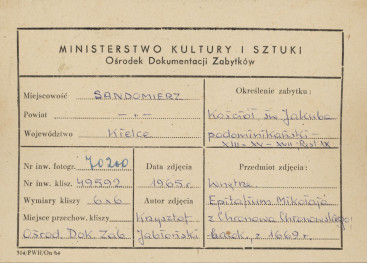 MINISTERSTWO KULTURY I SZTUKI
Ośrodek Dokumentacji Zabytków
Miejscowość SANDOMIERZ
Powiat -„-
Województwo Kielce
Określenie zabytku:
Kościół św Jakuba
podominikański -
XIII - XV - XVII - Rest IX
Nr inw. fotogr. 70200
Nr inw. klisz. 49592
Wymiary kliszy 6x6
Miejsce przechow. kliszy
Ośrod. Dok. Zab
Data zdjęcia
1965 r.
Autor zdjęcia
Krzysztof
Jabłoński
Przedmiot zdjęcia:
Wnętrze.
Epitafium Mikołaja
z Chronowa Chronowskiego
barok. z 1669 r.